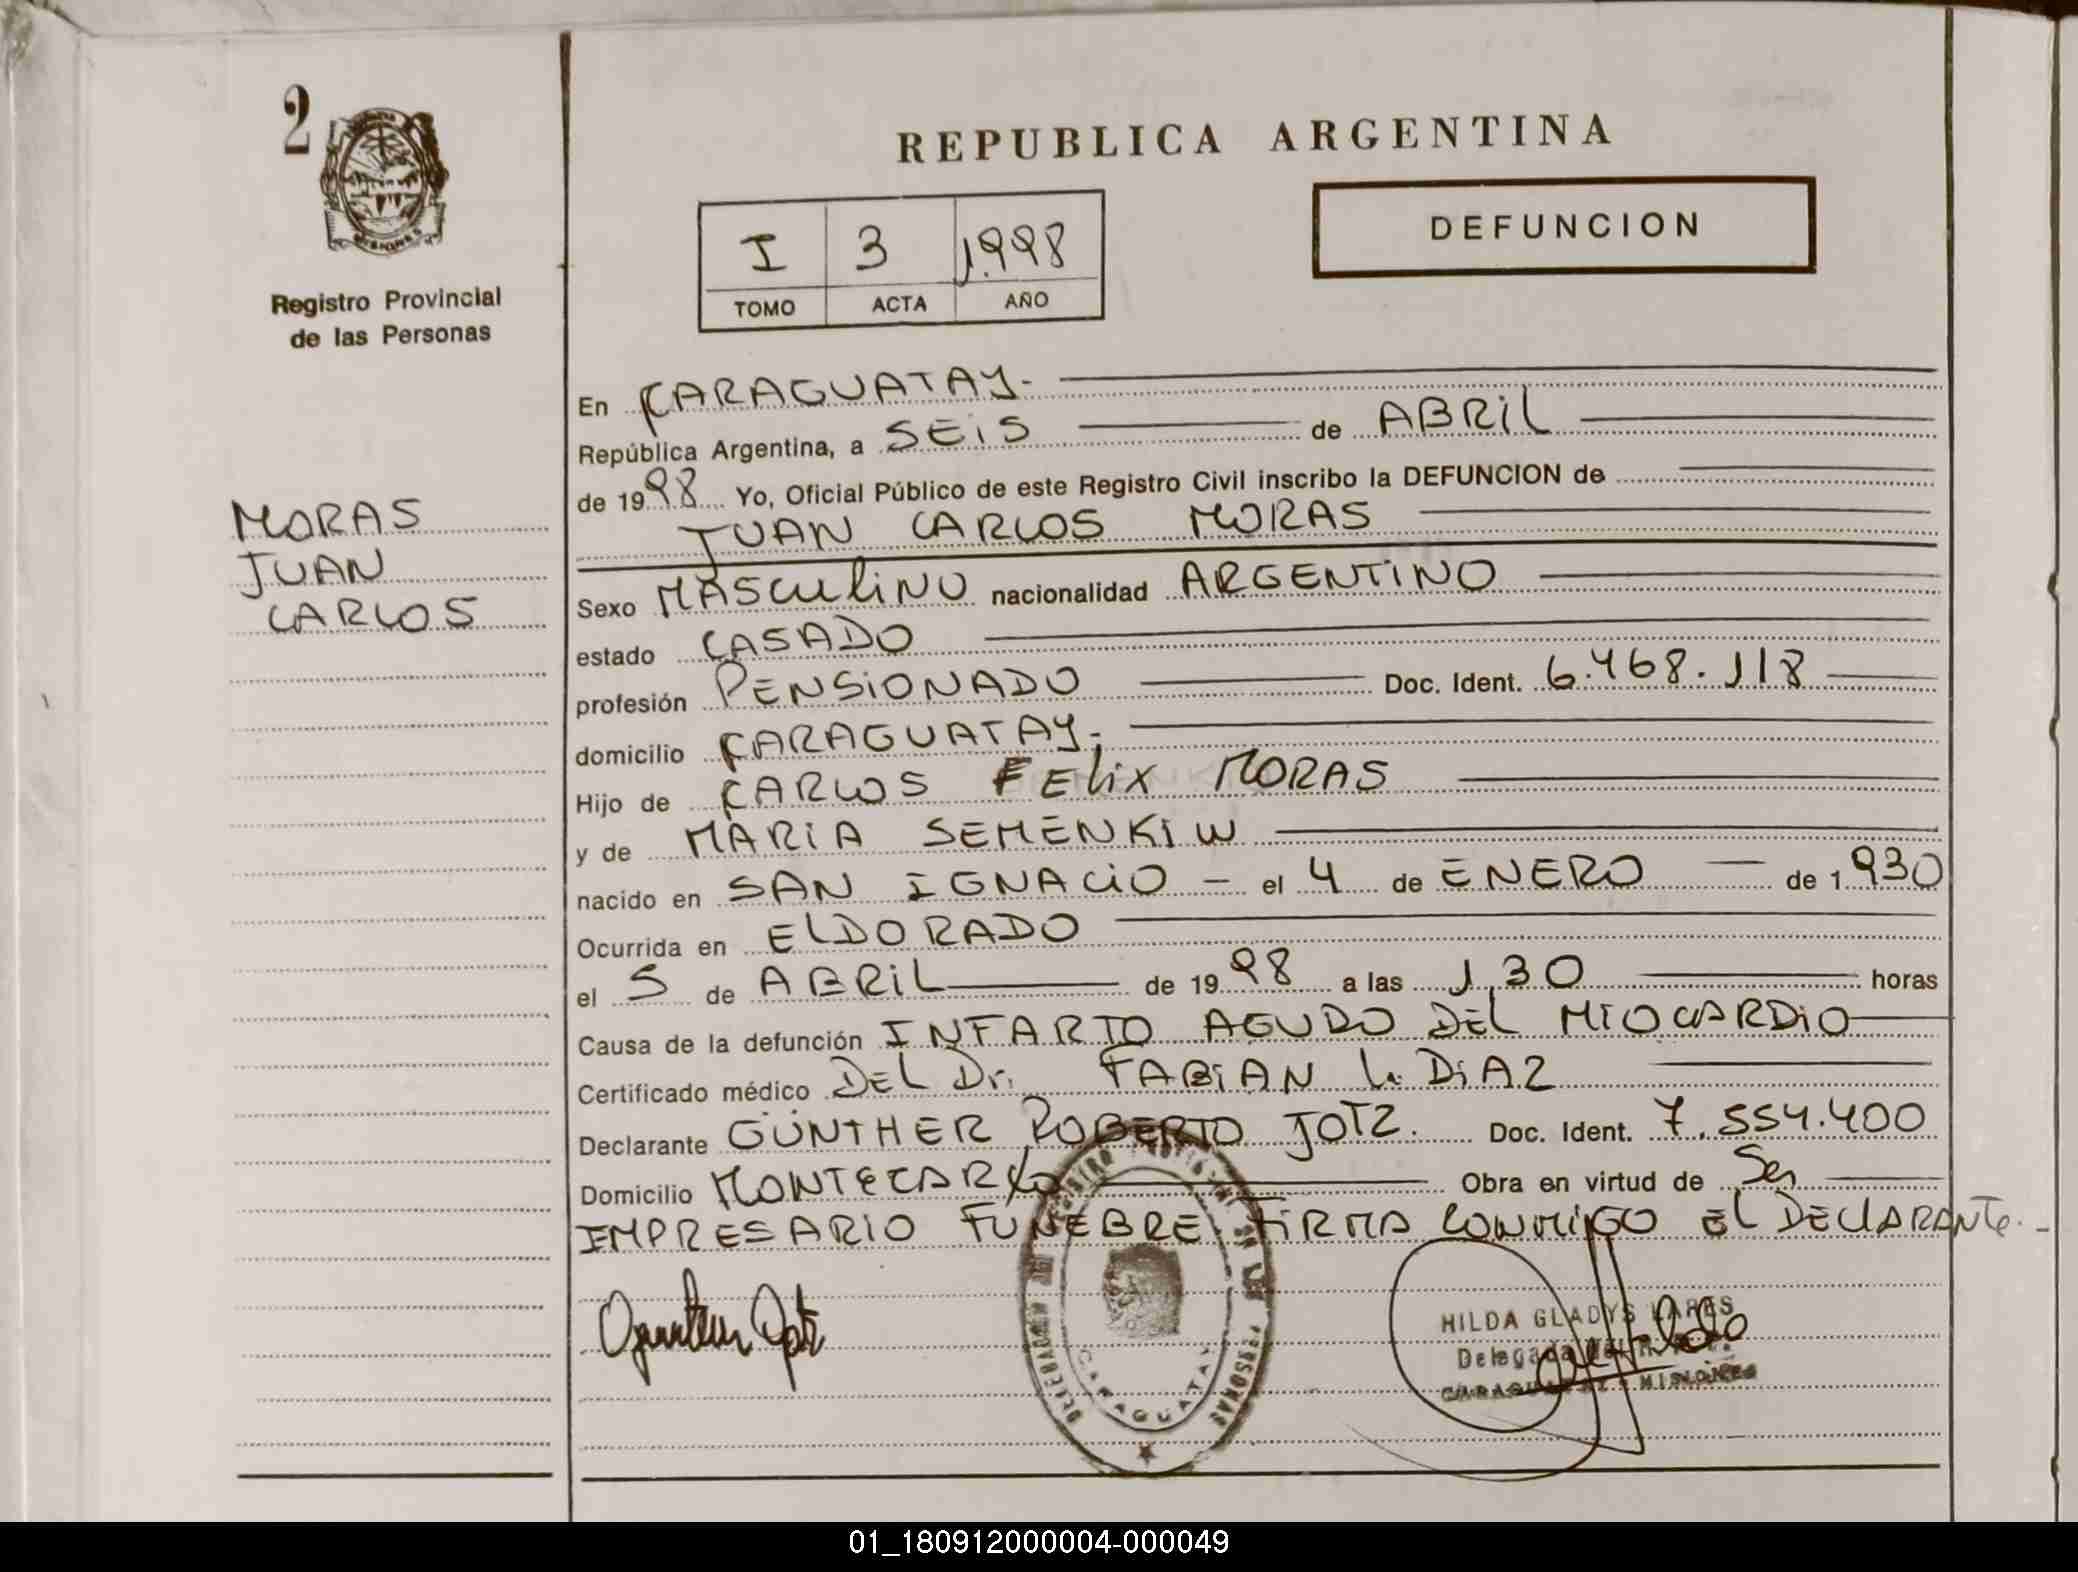 2
REPUBLICA ARGENTINA
DEFUNCION
I 3 1998
TOMO ACTA AÑO
Registro Provincial
de las Personas
MORAS
JUAN
CARLOS
En CARAGUATAY.
República Argentina, a SEIS de ABRIL
de 1998 Yo, Oficial Público de este Registro Civil inscribo la DEFUNCION de
JUAN CARLOS MORAS
Sexo MASCULINO nacionalidad ARGENTINO
estado CASADO
profesión PENSIONADO Doc. Ident. 6.468.118
domicilio CARAGUATAY.
Hijo de CARLOS FELIX MORAS
y de MARIA SEMENKIW
nacido en SAN IGNACIO - el 4 de ENERO de 1930
Ocurrida en ELDORADO
el 5 de ABRIL de 1998 a las 1,30 horas
Causa de la defunción INFARTO AGUDO DEL MIOCARDIO
Certificado médico DEL Dr. FABIAN L. DIAZ
Declarante GÜNTHER ROBERTO JOTZ. Doc. Ident. 7.554.400
Domicilio MONTECARLO Obra en virtud de Ser
EMPRESARIO FUNEBRE FIRMA CONMIGO EL DECLARANTE.-
HILDA GLADYS LARES
Delegada
CARAGUATAY - MISIONES
CARAGUATAY
01_180912000004-000049